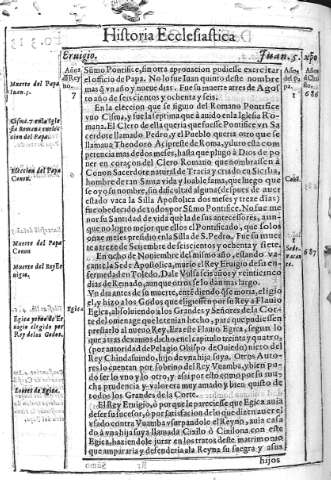 Historia Ecclesiastica
Eruigio.
Juan. 5.
Año
del Rey
no.
7
Años
del Pa
pa.
1
686
Muerte del Papa
Iuan. 5.
Cisma, y en la Igle
sia Romana enelec
cion del Papa.
Eleccion del Papa
Conon.
Muerte del Papa
Conon
Muerte del Rey Er
uigio.
Egica yerno de Er
uigio elegido por
Rey de los Godos.
Loores de Egica.
Egica
Conon
Sede
vacan
te.
687
Sũmo Pontifice, sin otra aprouacion pudiesse exercitar
el officio de Papa. No lo fue Iuan quinto deste nombre
mas q̃ vn año y nueue dias. Fue su muerte a tres de Agos
to año de seiscientos y ochenta y seis.
En la eleccion que se siguio del Romano Pontifice
vuo Cisma, y fue la septima que à auido en la Iglesia Ro-
mana. El Clero de ella queria que fuesse Pontifice vn Sa-
cerdote llamado Pedro, y el Pueblo queria otro que se
llamaua Theodoro Acipreste de Roma, y duro esta com
petencia mas de dos meses, hasta que plugo à Dios de po
ner en coraçon del Clero Romano que nombrassen à
Conon Sacerdote natural de Tracia y criado en Sicilia,
hombre de tan Santa vida y loable fama, que luego que
se oyo su nombre, sin dificultad alguna (despues de auer
estado vaca la Silla Apostolica dos meses y treze dias)
fue obedecido de todos por Sũmo Pontifice. No fue me
nor su Santidad de vida que la de sus antecessores, aun-
que no logro mejor que ellos el Pontificado, que solos
onze meses presidio en la Silla de S. Pedro. Fue su muer
te a treze de Setiembre de seiscientos y ochenta y siete.
En ocho de Nouiembre del mismo año, estando va-
cante la Sede Apostolica, murio el Rey Eruigio de su en-
fermedad en Toledo. Dale Vulsa seis años y veinticinco
dias de Reynado, aunque otros se lo dan mas largo.
Vn dia antes de su muerte, entẽdiendo q̃ se moria, eligio
el, y hizo a los Godos que eligiessen por su Rey a Flauio
Egica, absoluiendo a los Grandes y Señores de la Cor-
te del omenage que le tenian hecho, para que pudiessen
prestarlo al nueuo Rey. Era este Flauio Egica, segun lo
que atras dexamos dicho en el capitulo treinta y quatro,
(por autoridad de Pelagio Obispo de Ouiedo) nieto del
Rey Chindasuindo, hijo de vna hija suya. Otros Auto-
res lo cuentan por sobrino del Rey Vuamba, y bien pu-
do ser lo vno y lo otro, y assi por esto como por su mu-
cha prudencia y valor era muy amado y bien quisto de
todos los Grandes de la Corte.
El Rey Eruigio, ò porque le pareciesse que Egica auia
de ser su successor, ò por satisfacion de lo que auia auer el
vsado contra Vuamba vsurpandole el Reyno, auia casa
do à vna hija suya llamada Cixilo ò Ciuilona con este
Egica, haziendole jurar en los tratos deste matrimonio
que ampararia y defenderia à la Reyna su suegra y a sus
hijos